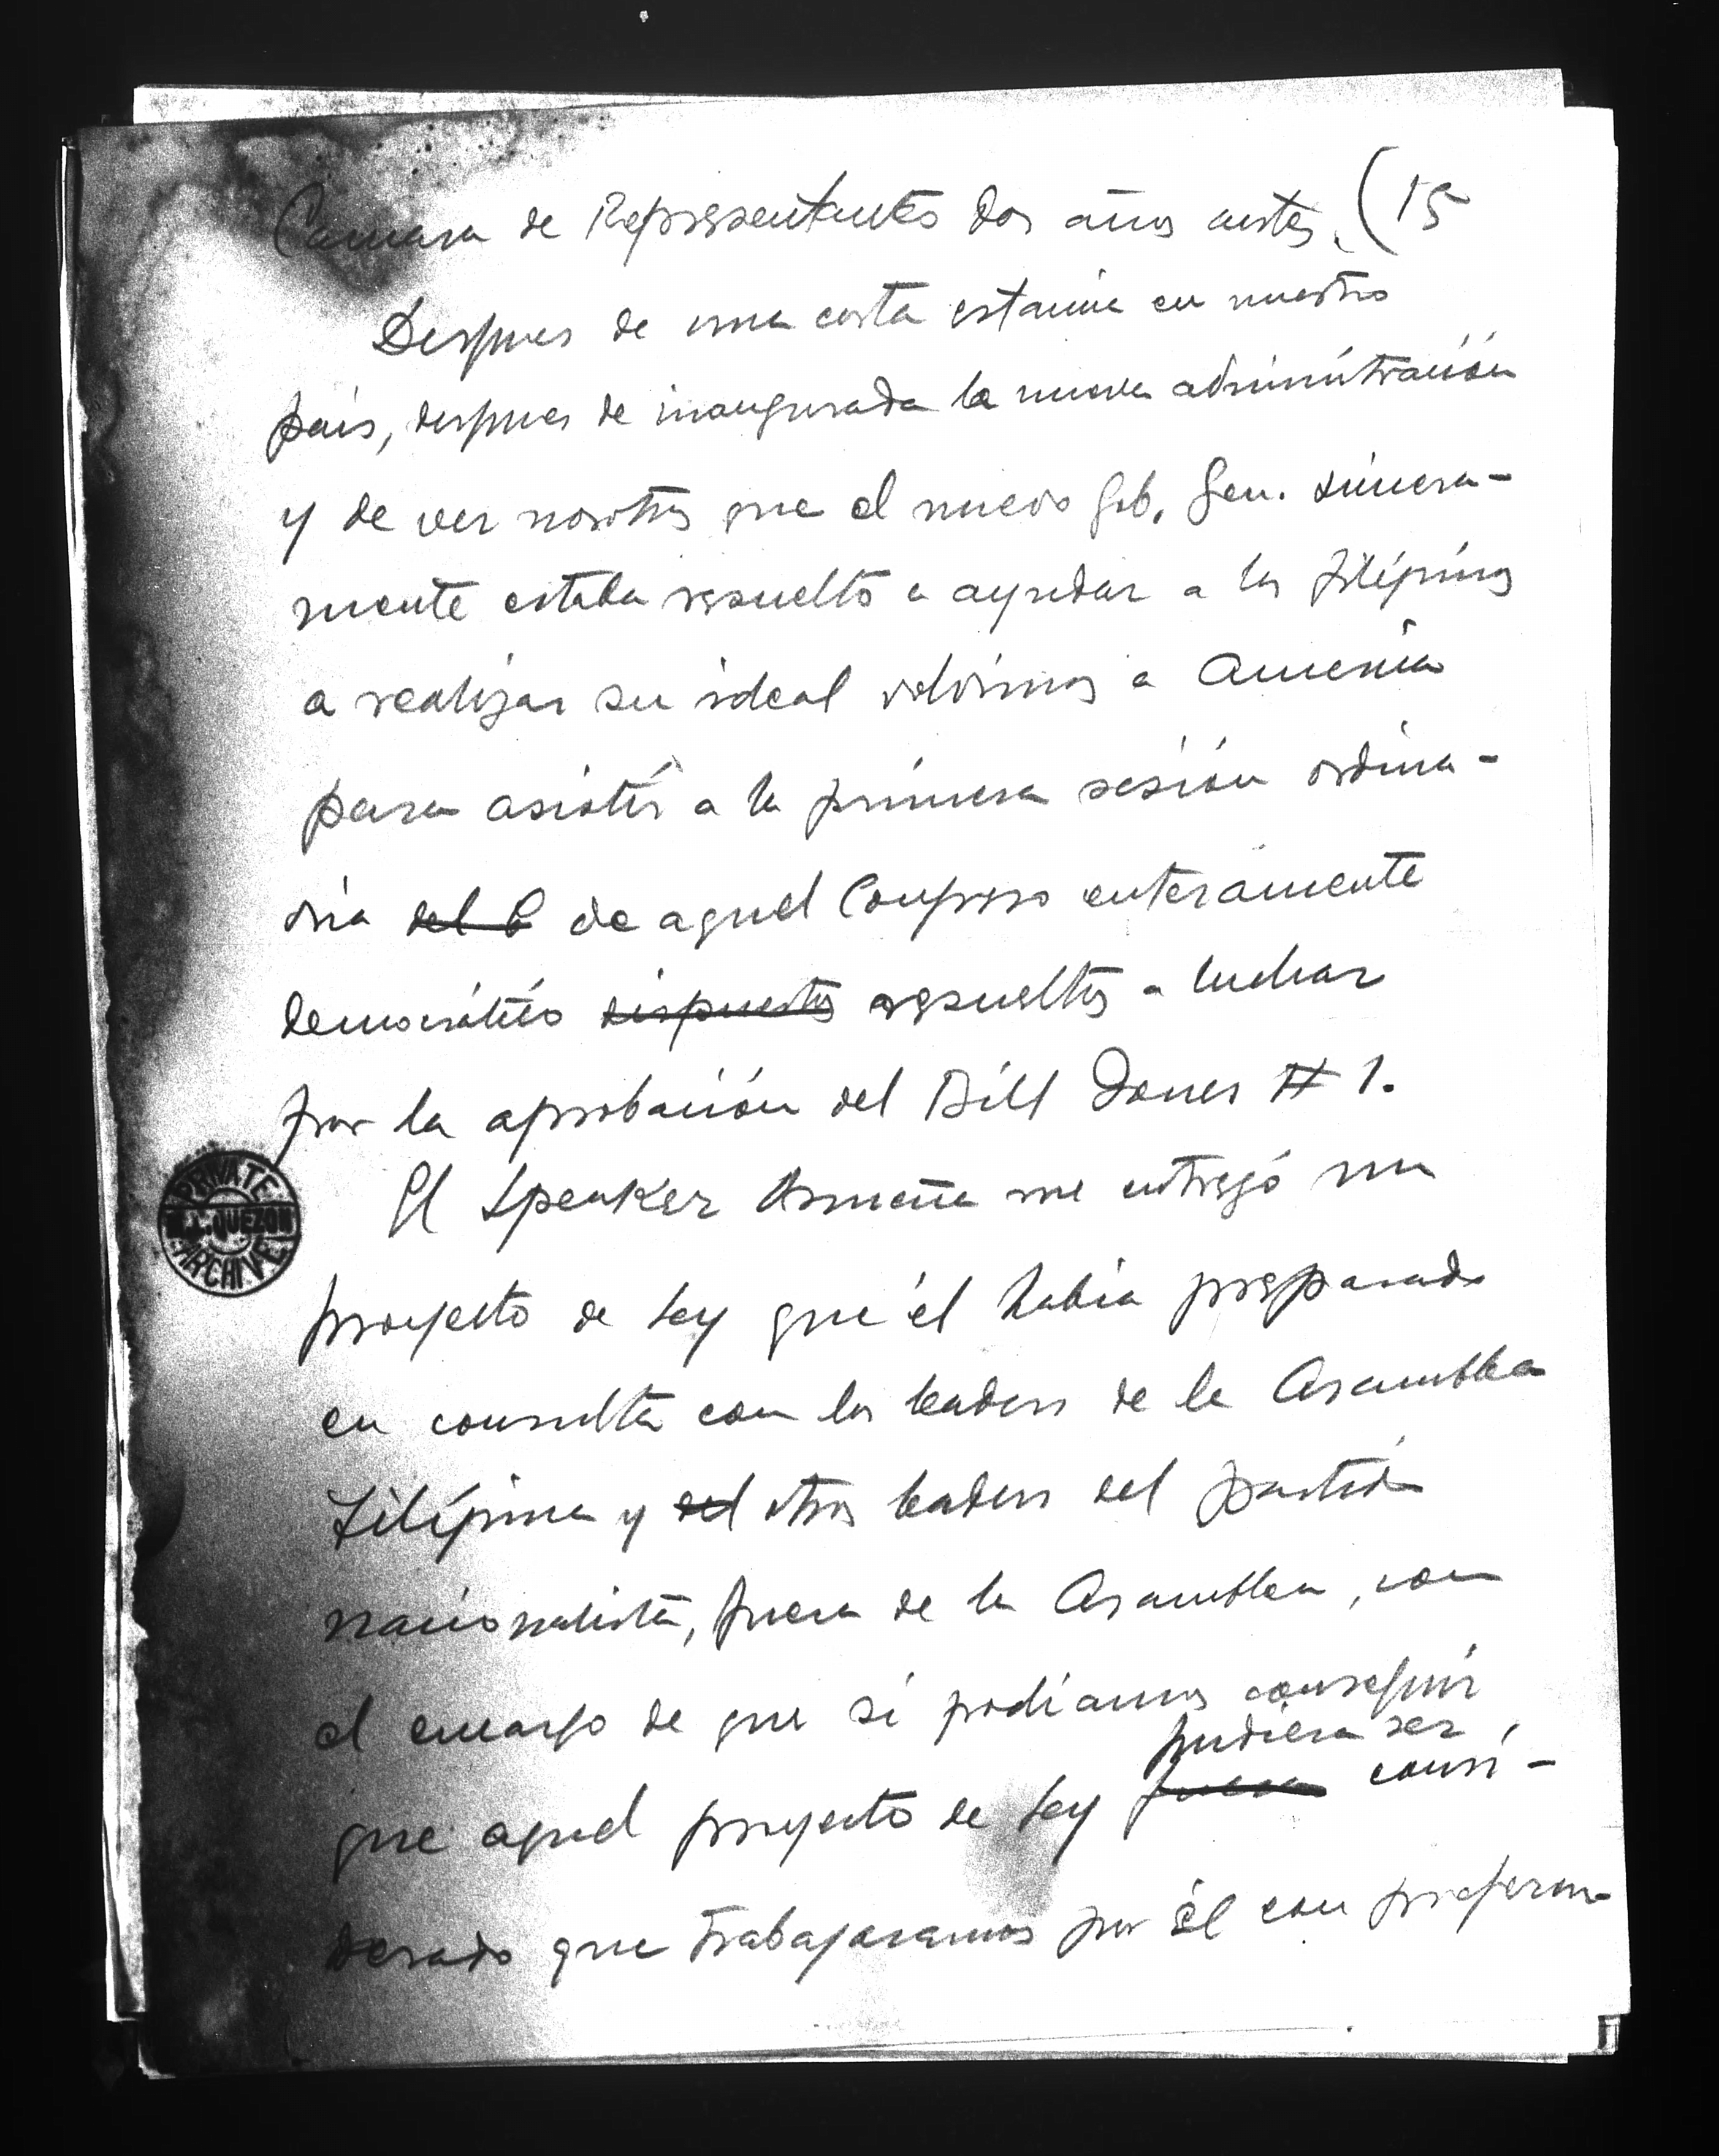 Camara de Representantes dos años antes. (15
Despues de una corta estancia en nuestro
pais, despues de inaugurada la nueva administración
y de ver nosotros que el nuevo Gob. Gen. sincera-
mente estaba resuelto a ayudar a los filipinos
a realizar su ideal volvimos a America
para asistir a la primera sesión ordina-
ria del C de aquel Congreso enteramente
democrático dispuestos resueltos a luchar
por la aprobación del Bill Jones # 1.
El Speaker Osmeña me entregó un
proyecto de ley que él habia preparado
en consulta con los leaders de la Asamblea
Filipina y del otros leaders del partido
nacionalista, fuera de la Asamblea, con
el encargo de que si podiamos conseguir
pudiera ser
que aquel proyecto de ley fuera consi-
derado que trabajaramos por él con preferen-
PRIVATE
M. L. QUEZON
ARCHIVE